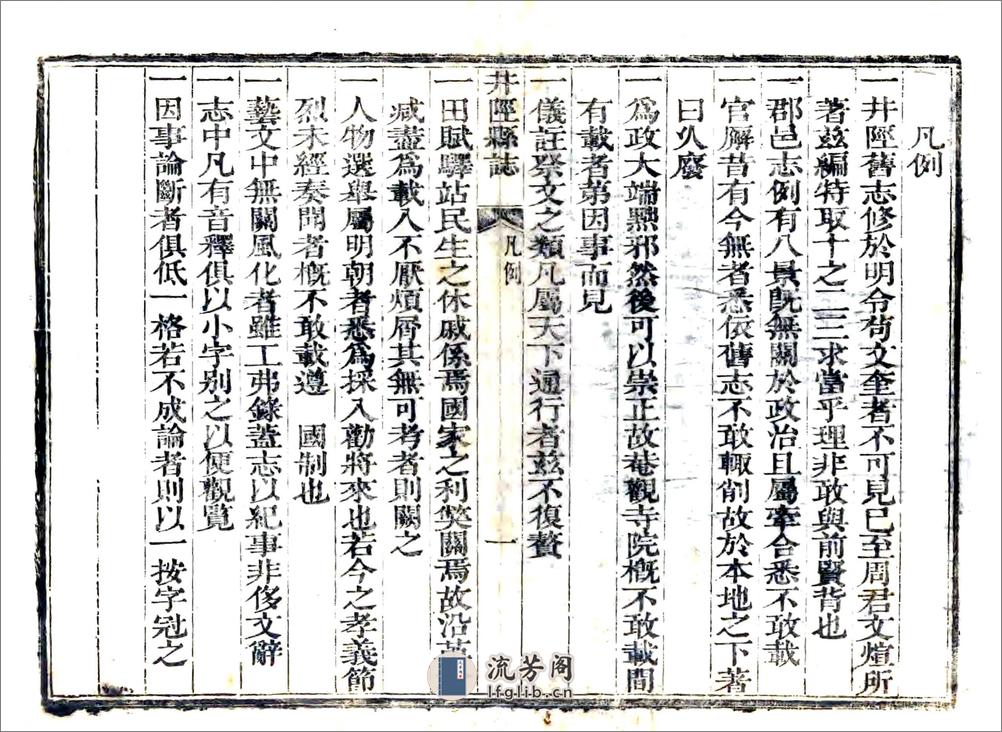 凡例
一井陘舊志修於明令苟文奎者不可見已至周君文煊所
著茲編特取十之二三求當乎理非敢與前賢背也
一郡邑志例有八景旣無關於政治且屬牽合悉不敢載
一官廨昔有今無者悉依舊志不敢輙削故於本地之下著
曰久廢
一爲政大端黜邪然後可以崇正故菴觀寺院槪不敢載間
有載者第因事而見
一儀註祭文之類凡屬天下通行者茲不復贅
井陘縣誌
凡例
一
一田賦驛站民生之休戚係焉國家之利獘關焉故沿革
減盡爲載入不厭煩屑其無可考者則闕之
一人物選舉屬明朝者悉爲採入勸將來也若今之孝義節
烈未經奏聞者槪不敢載遵 國制也
一藝文中無關風化者雖工弗錄蓋志以紀事非侈文辭
一志中凡有音釋俱以小字别之以便觀覽
一因事論斷者俱低一格若不成論者則以一按字冠之
流芳阁
lfglib.cn